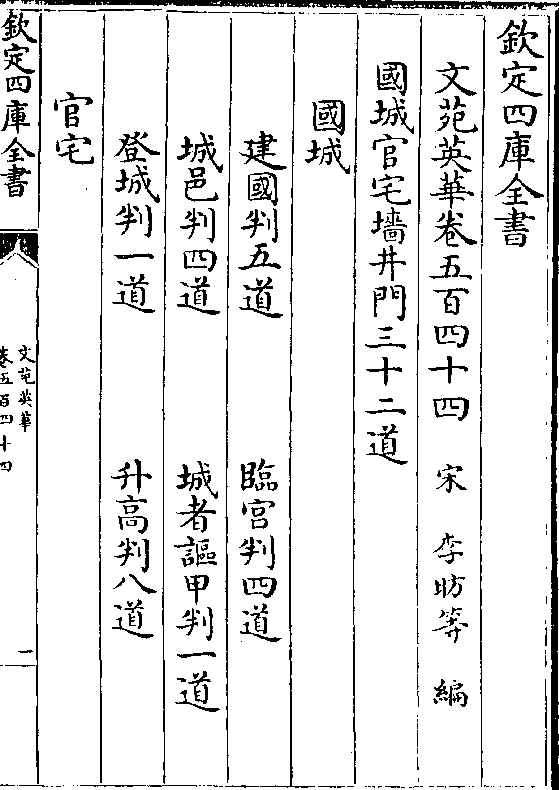 欽定四庫全書
文苑英華卷五百四十四　宋　李昉等　編
國城官宅墻井門三十二道
國城
建國判五道　臨宫判四道
城邑判四道　城者謳甲判一道
登城判一道　升高判八道
官宅
欽定四庫全書
文苑英華
卷五百四十四
一